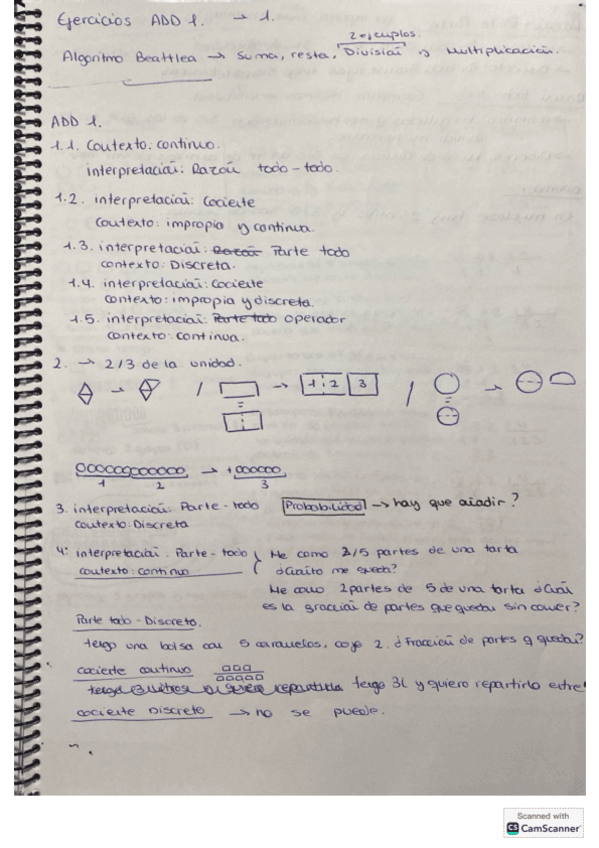 Ejercicios ADD 1. → 1.
2 ejemplos.
Algoritmo Beattlea → Suma, resta, División y Multiplicación.
ADD 1.
1.1. Contexto: continuo.
interpretación: Razón todo-todo.
1.2. interpretación: Cociente
Contexto: impropia y continua.
1.3. interpretación: Razón Parte todo
contexto: Discreta.
1.4. interpretación: Cociente
contexto: impropia y discreta.
1.5. interpretación: Parte todo Operador
contexto: continua.
2. → 2/3 de la unidad.
1 2 3
1 2 3
3. interpretación: Parte-todo Probabilidad → hay que añadir?
contexto: Discreta
4: interpretación: Parte-todo
contexto: continuo
Me como 2/5 partes de una tarta
¿Cuánto me queda?
Me como 2 partes de 5 de una tarta ¿Cuál
es la gracción de partes que quedan sin comer?
Parte todo - Discreto.
tengo una bolsa con 5 caramelos, cojo 2. ¿Fracción de partes q quedan?
cociente continuo
tengo 3 litros y quiero repartirla tengo 3L y quiero repartirlo entre
cociente Discreto → no se puede.
Scanned with
CS CamScanner